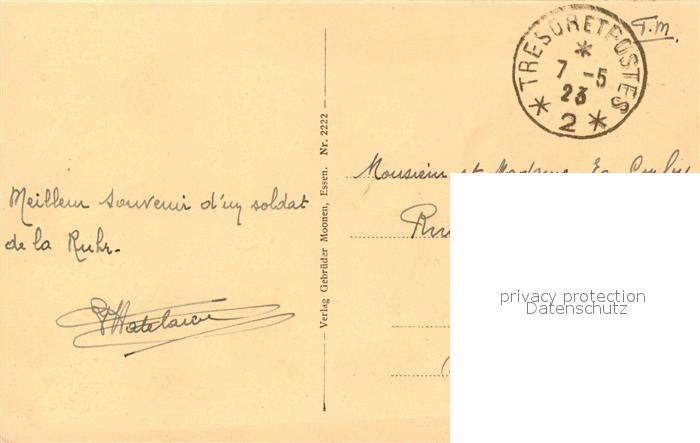 T.M.
TRESOR ET POSTES
*
7 -5
23
* 2 *
Meilleur souvenir d'un soldat
de la Ruhr.
Verlag Gebrüder Moonen, Essen. Nr. 2222
Monsieur et Madame
privacy protection
Datenschutz